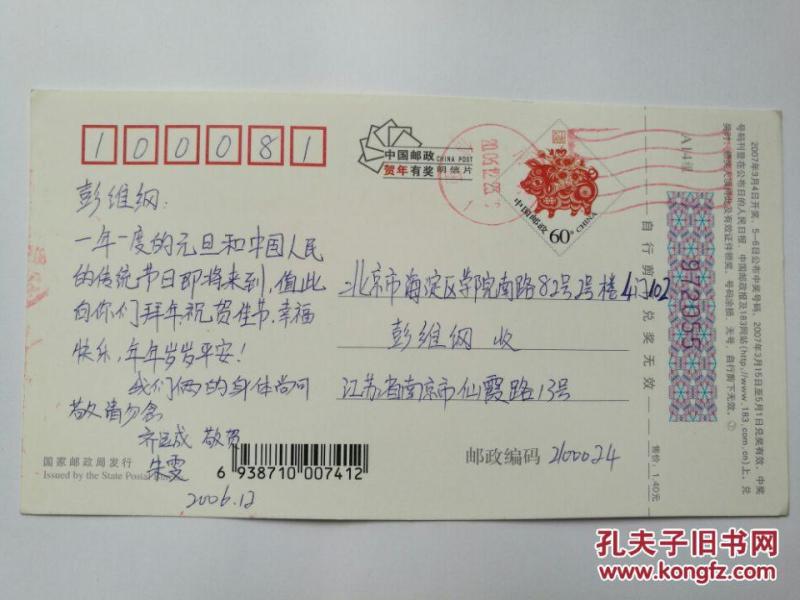 100081
中国邮政 CHINA POST
贺年有奖 明信片
中国邮政 60分 CHINA
2006.12
彭维纲：
一年一度的元旦和中国人民
的传统节日即将来到，值此
向你们拜年，祝贺佳节，幸福
快乐，年年岁岁平安！
我们俩的身体尚可
敬请勿念
齐运成 敬贺
朱雯
2006.12
北京市海淀区学院南路82号2号楼4门102
彭维纲 收
江苏省南京市仙霞路13号
邮政编码 2100024
国家邮政局发行
Issued by the State Postal
6 938710 007412
自行剪 兑奖无效
A14组
972055
售价：1.40元
2007年3月4日开奖，5-6日公布中奖号码，2007年3月15日至5月1日兑奖有效，中奖
号码刊登在公布日的人民日报、中国邮政报及183网站(http://www.183.com.cn)上，兑
有效证件领奖，号码涂损、无号、自行剪下无效。
孔夫子旧书网
www.kongfz.com